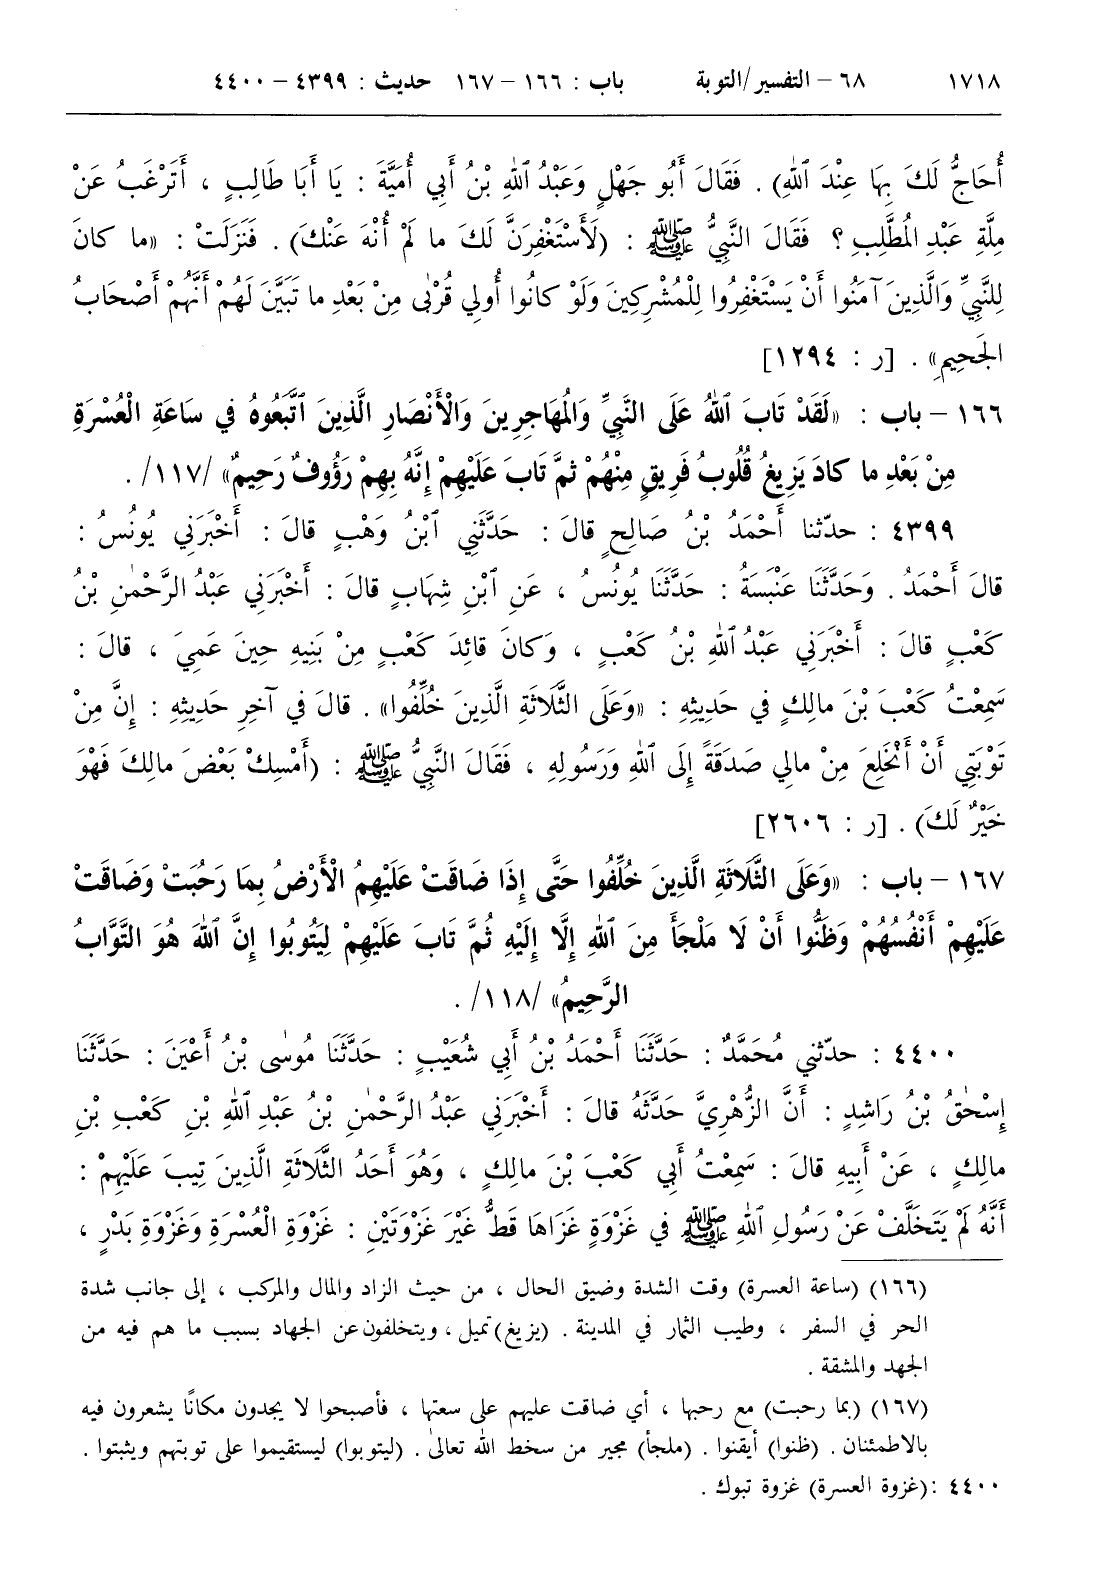 ١٧١٨ ٦٨ – التفسير/التوبة باب : ١٦٦ – ١٦٧ حديث : ٤٣٩٩ – ٤٤٠٠
أُحَاجُّ لَكَ بِهَا عِنْدَ ٱللهِ) . فَقَالَ أَبُو جَهْلٍ وَعَبْدُ ٱللهِ بْنُ أَبِي أُمَيَّةَ : يَا أَبَا طَالِبٍ ، أَتَرْغَبُ عَنْ
مِلَّةِ عَبْدِ المُطَّلِبِ ؟ فَقَالَ النَّبِيُّ ﷺ : (لَأَسْتَغْفِرَنَّ لَكَ ما لَمْ أُنْهَ عَنْكَ) . فَنَزَلَتْ : «ما كانَ
لِلنَّبِيِّ وَالَّذِينَ آمَنُوا أَنْ يَسْتَغْفِرُوا لِلْمُشْرِكِينَ وَلَوْ كانُوا أُولِي قُرْبٰى مِنْ بَعْدِ ما تَبَيَّنَ لَهُمْ أَنَّهُمْ أَصْحَابُ
الجَحِيمِ» . [ر : ١٢٩٤]
١٦٦ – باب : «لَقَدْ تَابَ ٱللهُ عَلَى النَّبِيِّ وَالمُهَاجِرِينَ وَالْأَنْصَارِ الَّذِينَ ٱتَّبَعُوهُ في سَاعَةِ الْعُسْرَةِ
مِنْ بَعْدِ ما كادَ يَزِيغُ قُلُوبُ فَرِيقٍ مِنْهُمْ ثمَّ تَابَ عَلَيْهِمْ إِنَّهُ بِهِمْ رَؤُوفٌ رَحِيمٌ» /١١٧/ .
٤٣٩٩ : حدّثنا أَحْمَدُ بْنُ صَالِحٍ قالَ : حَدَّثَنِي ٱبْنُ وَهْبٍ قالَ : أَخْبَرَنِي يُونُسُ :
قالَ أَحْمَدُ . وَحَدَّثَنَا عَنْبَسَةُ : حَدَّثَنَا يُونُسُ ، عَنِ ٱبْنِ شِهَابٍ قالَ : أَخْبَرَنِي عَبْدُ الرَّحْمٰنِ بْنُ
كَعْبٍ قالَ : أَخْبَرَنِي عَبْدُ ٱللهِ بْنُ كَعْبٍ ، وَكانَ قائِدَ كَعْبٍ مِنْ بَنِيهِ حِينَ عَمِيَ ، قالَ :
سَمِعْتُ كَعْبَ بْنَ مالِكٍ في حَدِيثِهِ : «وَعَلَى الثَّلَاثَةِ الَّذِينَ خُلِّفُوا» . قالَ في آخِرِ حَدِيثِهِ : إِنَّ مِنْ
تَوْبَتِي أَنْ أَنْخَلِعَ مِنْ مالِي صَدَقَةً إِلَى ٱللهِ وَرَسُولِهِ ، فَقَالَ النَّبِيُّ ﷺ : (أَمْسِكْ بَعْضَ مالِكَ فَهْوَ
خَيْرٌ لَكَ) . [ر : ٢٦٠٦]
١٦٧ – باب : «وَعَلَى الثَّلَاثَةِ الَّذِينَ خُلِّفُوا حَتَّى إِذَا ضَاقَتْ عَلَيْهِمُ الْأَرْضُ بِمَا رَحُبَتْ وَضَاقَتْ
عَلَيْهِمْ أَنْفُسُهُمْ وَظَنُّوا أَنْ لَا مَلْجَأَ مِنَ ٱللهِ إِلَّا إِلَيْهِ ثُمَّ تَابَ عَلَيْهِمْ لِيَتُوبُوا إِنَّ ٱللهَ هُوَ التَّوَّابُ
الرَّحِيمُ» /١١٨/ .
٤٤٠٠ : حدّثني مُحَمَّدٌ : حَدَّثَنَا أَحْمَدُ بْنُ أَبِي شُعَيْبٍ : حَدَّثَنَا مُوسٰى بْنُ أَعْيَنَ : حَدَّثَنَا
إِسْحٰقُ بْنُ رَاشِدٍ : أَنَّ الزُّهْرِيَّ حَدَّثَهُ قالَ : أَخْبَرَنِي عَبْدُ الرَّحْمٰنِ بْنُ عَبْدِ ٱللهِ بْنِ كَعْبِ بْنِ
مالِكٍ ، عَنْ أَبِيهِ قالَ : سَمِعْتُ أَبِي كَعْبَ بْنَ مالِكٍ ، وَهُوَ أَحَدُ الثَّلَاثَةِ الَّذِينَ تِيبَ عَلَيْهِمْ :
أَنَّهُ لَمْ يَتَخَلَّفْ عَنْ رَسُولِ ٱللهِ ﷺ في غَزْوَةٍ غَزَاهَا قَطُّ غَيْرَ غَزْوَتَيْنِ : غَزْوَةِ الْعُسْرَةِ وَغَزْوَةِ بَدْرٍ ،
(١٦٦) (ساعة العسرة) وقت الشدة وضيق الحال ، من حيث الزاد والمال والمركب ، إلى جانب شدة
الحر في السفر ، وطيب الثمار في المدينة . (يزيغ) تميل ، ويتخلفون عن الجهاد بسبب ما هم فيه من
الجهد والمشقة .
(١٦٧) (بما رحبت) مع رحبها ، أي ضاقت عليهم على سعتها ، فأصبحوا لا يجدون مكانًا يشعرون فيه
بالاطمئنان . (ظنوا) أيقنوا . (ملجأ) مجير من سخط الله تعالىٰ . (ليتوبوا) ليستقيموا على توبتهم ويثبتوا .
٤٤٠٠ : (غزوة العسرة) غزوة تبوك .